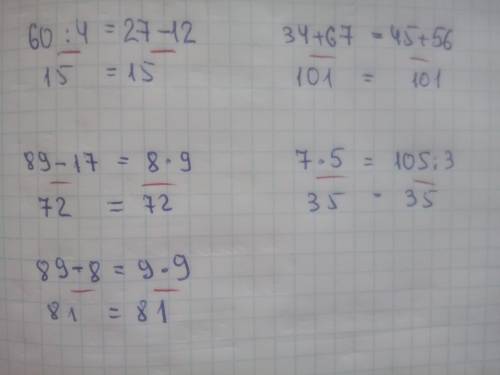 60 : 4 = 27 - 12
15 = 15
34 + 67 = 45 + 56
101 = 101
89 - 17 = 8 · 9
72 = 72
7 · 5 = 105 : 3
35 - 35
89 - 8 = 9 · 9
81 = 81